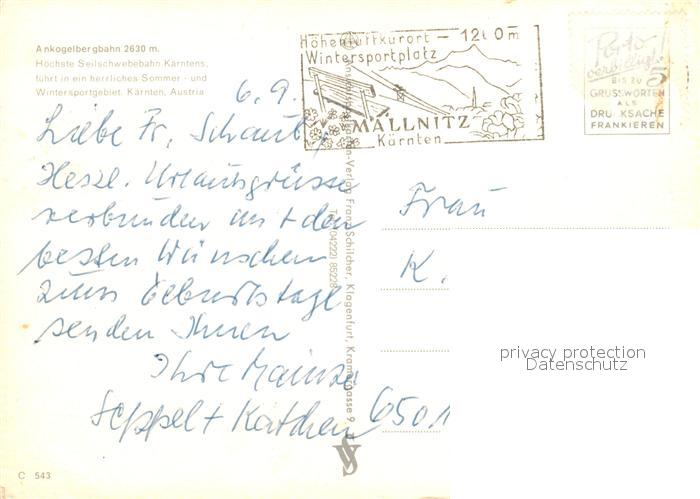 Ankogelbergbahn 2630 m.
Höchste Seilschwebebahn Kärntens,
führt in ein herrliches Sommer- und
Wintersportgebiet. Kärnten, Austria
Höhenluftkurort – 1200m
Wintersportplatz
MALLNITZ
Kärnten
Porto
verbilligt!
BIS ZU 5
GRUSSWORTEN
ALS
DRUCKSACHE
FRANKIEREN
6.9.
Liebe Fr. Schaub,
Herzl. Urlaubsgrüsse
verbunden mit den
besten Wünschen
zum Geburtstage
senden Ihnen
Ihre Mainzer
Seppel + Katchen
Franz Schilcher, Klagenfurt,
Frau
K.
6501
privacy protection
Datenschutz
C 543